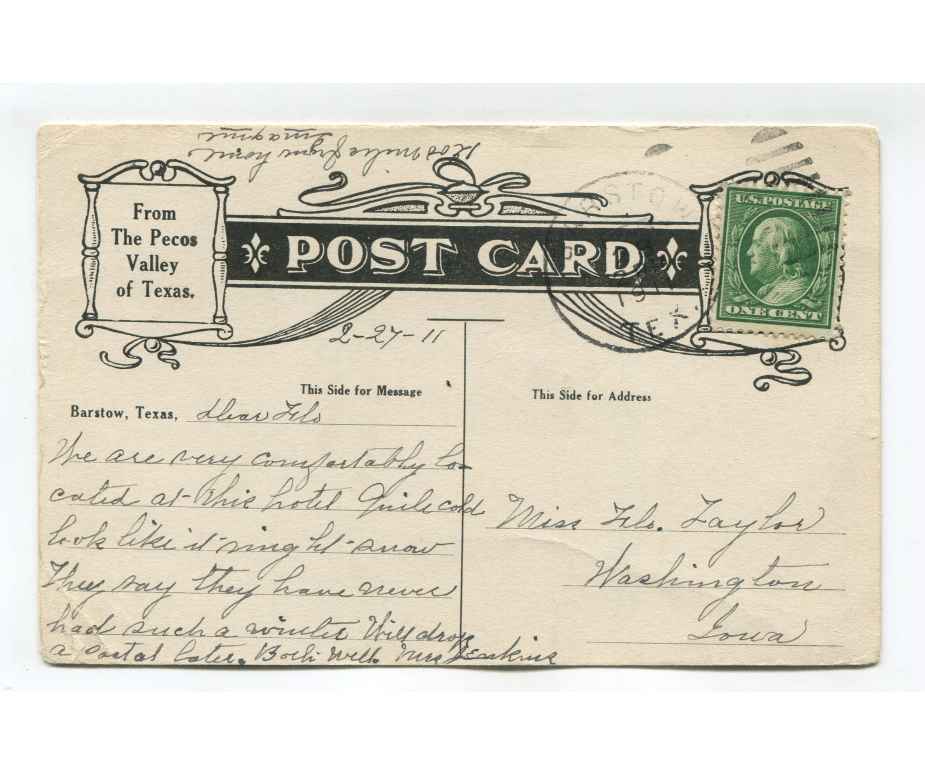 miles from home
imagine
From
The Pecos
Valley
of Texas.
POST CARD
BARSTOW
1911
TEX.
U.S. POSTAGE
ONE CENT
2-27-11
This Side for Message
This Side for Address
Barstow, Texas, Dear Flo
We are very comfortably lo-
cated at this hotel Quite cold
look like it might snow
They say they have never
had such a winter Will drop
a postal later. Both well. Mrs Jenkins
Miss Flo. Taylor
Washington
Iowa